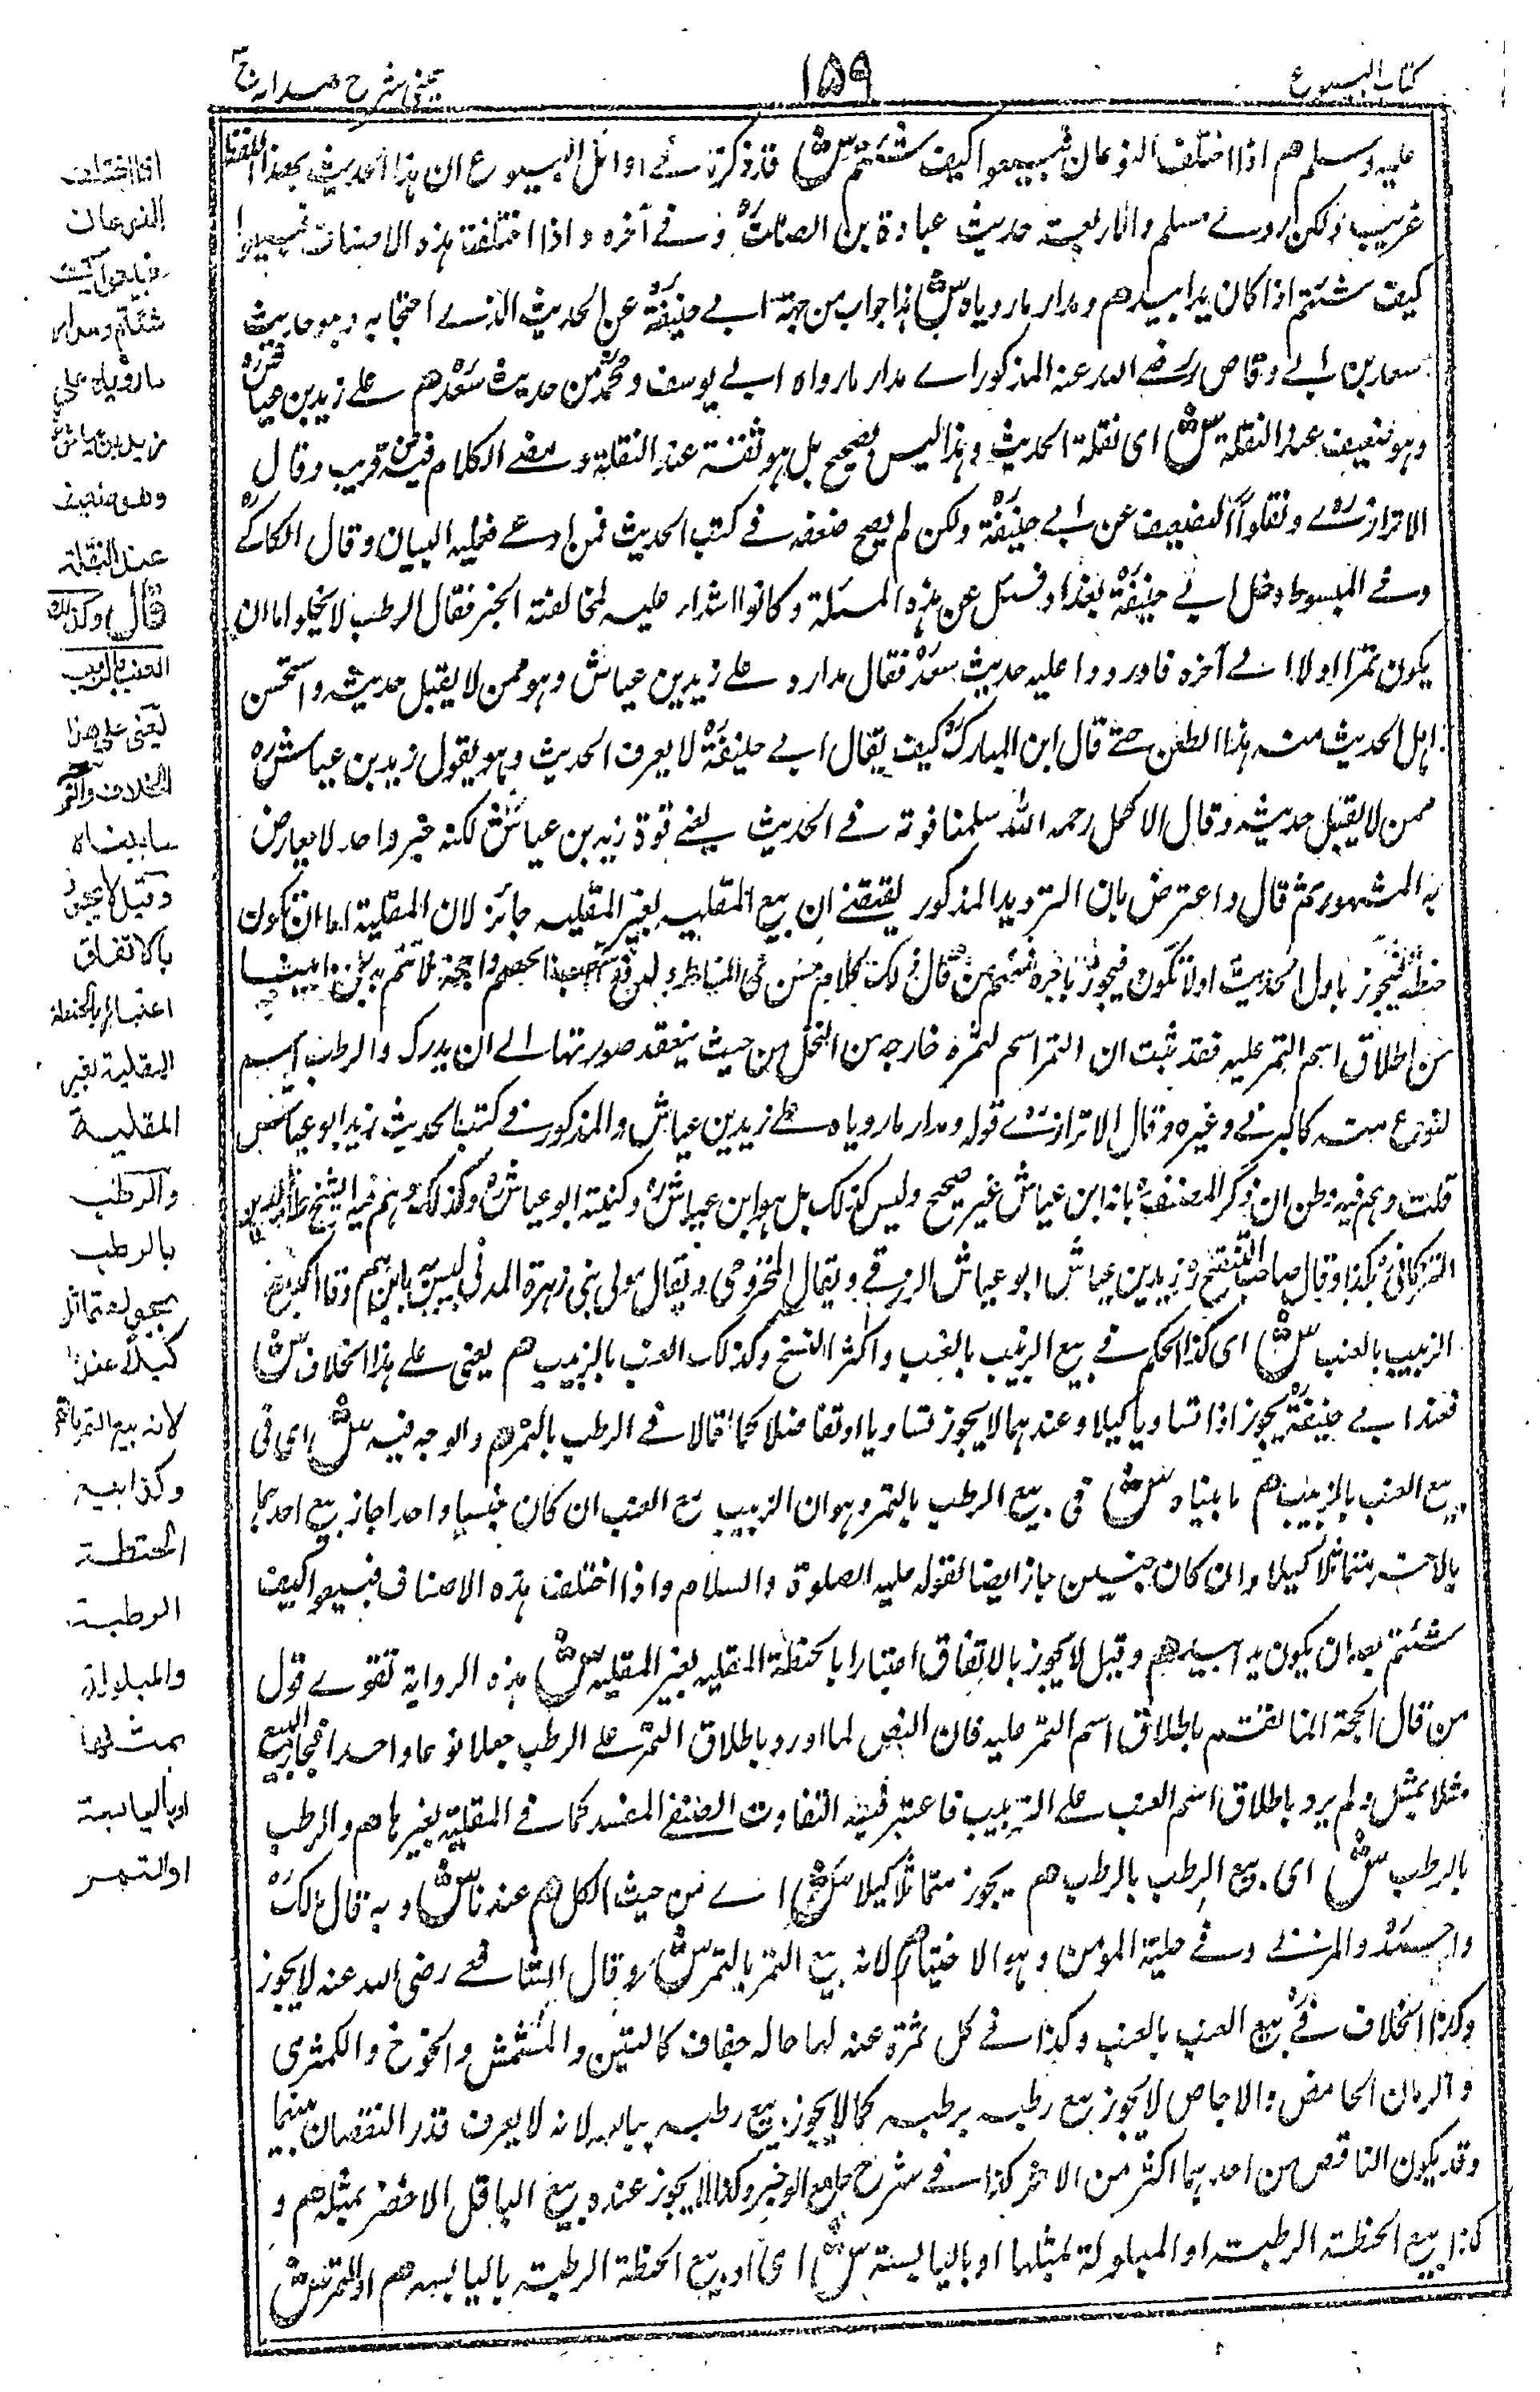 كتاب البيوع
١٥٩
عينى شرح هداية ج ٣
عليه وسلم هم اذا اختلف النوعان فبيعوا كيف شئتم ش قد ذكرنا في اوائل البيوع ان هذا الحديث بهذا اللفظ
غريب ولكن روى مسلم والاربعة حديث عبادة بن الصامت وفي آخره واذا اختلفت هذه الاصناف فبيعوا
كيف شئتم اذا كان يدا بيد هم ومدار ما روياه ش هذا جواب من جهة ابي حنيفة عن الحديث الذي احتجا به وهو حديث
سعد بن ابي وقاص رضي الله عنه المذكور اي مدار ما رواه ابي يوسف ومحمد من حديث سعد هم على زيد بن عياش
وهو ضعيف عند النقلة ش اى نقلة الحديث وهذا ليس بصحيح بل هو ثقة عند النقلة ومضى الكلام فيه عن قريب وقال
الاترازي ونقلوا التضعيف عن ابي حنيفة ولكن لم يصح ضعفه في كتب الحديث فمن ادعى فعليه البيان وقال الكاكي
وفي المبسوط دخل ابي حنيفة بغداد فسئل عن هذه المسئلة وكانوا اشداء عليه لمخالفته الخبر فقال الرطب لا يخلو اما ان
يكون تمرا اولا الى آخره فاوردوا عليه حديث سعد فقال مداره على زيد بن عياش وهو ممن لا يقبل حديثه واستحسن
اهل الحديث منه هذا الطعن حتى قال ابن المبارك كيف يقال ابي حنيفة لا يعرف الحديث وهو يقول زيد بن عياش
ممن لا يقبل حديثه وقال الاكمل رحمه الله سلمنا قوته في الحديث يعني قوة زيد بن عياش لكنه خبر واحد لا يعارض
به المشهور ثم قال واعترض بان الترديد المذكور يقتضي ان بيع المقلية بغير المقلية جائز لان المقلية اما ان تكون
حنطة فيجوز باول الحديث اولا تكون فيجوز بآخره فمنهم من قال ذلك كلام حسن في المناظرة لدفع شغب الخصم والحجة لا تتم به بل بما بينا
من اطلاق اسم التمر عليه فقد ثبت ان التمر اسم لثمرة خارجة من النخل من حيث ينعقد صورتها الى ان يدرك والرطب اسم
لنوع منه كالبرني وغيره وقال الاترازي قوله ومدار ما روياه على زيد بن عياش والمذكور في كتب الحديث زيد ابو عياش
قلت وهم فيه وظن ان ذكر المصنف بانه ابن عياش غير صحيح وليس كذلك بل هو ابن عياش وكنيته ابو عياش وكذلك وهم فيه الشيخ علاء الدين
التركماني هكذا وقال صاحب التنقيح زيد بن عياش ابو عياش الزرقي ويقال المخزومي ويقال مولى بني زهرة المدني ليس به بأس هم قال وكذا
الزبيب بالعنب ش اى كذا الحكم في بيع الزبيب بالعنب واكثر النسخ وكذلك العنب بالزبيب هم يعنى على هذا الخلاف ش
فعند ابي حنيفة يجوز اذا تساويا كيلا وعندهما لا يجوز تساويا او تفاضلا كما قالا في الرطب بالتمر هم والوجه فيه ش اى في
بيع العنب بالزبيب هم ما بيناه ش في بيع الرطب بالتمر وهو ان الزبيب مع العنب ان كان جنسا واحدا جاز بيع احدهما
بالآخر متماثلا كيلا وان كان جنسين جاز ايضا لقوله عليه الصلوة والسلام واذا اختلف هذه الاصناف فبيعوا كيف
شئتم بعد ان يكون يدا بيد هم وقيل لا يجوز بالاتفاق اعتبارا بالحنطة المقلية بغير المقلية ش هذه الرواية تقوي قول
من قال الحجة المنالفت باطلاق اسم التمر عليه فان النص لما اورد باطلاق التمر على الرطب جعلا نوعا واحدا فجاز البيع
مثلا بمثل ولم يرد باطلاق اسم العنب على الزبيب فاعتبر فيه التفاوت الصنفي المفسد كما في المقلية بغيرها هم والرطب
بالرطب ش اى بيع الرطب بالرطب هم يجوز متماثلا كيلا ش اي من حيث الكل هم عندنا ش وبه قال مالك
واحمد والمزني وفي حلية المؤمن وهو الاختيار هم لانه بيع التمر بالتمر ش وقال الشافعي رضى الله عنه لا يجوز
وكذا الخلاف في بيع العنب بالعنب وكذا في كل ثمرة عنه لها حالة جفاف كالتين والمشمش والخوخ والكمثرى
والرمان الحامض والاجاص لا يجوز بيع رطبه برطبه كما لا يجوز بيع رطبه بيابسه لانه لا يعرف قدر النقصان منهما
وقد يكون الناقص من احدهما اكثر من الآخر كذا في شرح جامع الوجيز وكذا لا يجوز عنده بيع الباقلى الاخضر بمثله هم و
كذا بيع الحنطة الرطبة او المبلولة بمثلها او باليابسة ش اى او بيع الحنطة الرطبة باليابسة هم او التمر ش
اذا اختلف
النوعان
فبيعوا كيف
شئتم ومدار
ما روياه على
زيد بن عياش
وهو ضعيف
عند النقلة
قال وكذلك
العنب بالزبيب
يعنى على هذا
الخلاف والوجه
ما بيناه
وقيل لا يجوز
بالاتفاق
اعتبارا بالحنطة
المقلية بغير
المقلية
والرطب
بالرطب
يجوز متماثلا
كيلا عندنا
لانه بيع التمر بالتمر
وكذا بيع
الحنطة
الرطبة
والمبلولة
بمثلها
او باليابسة
او التمر